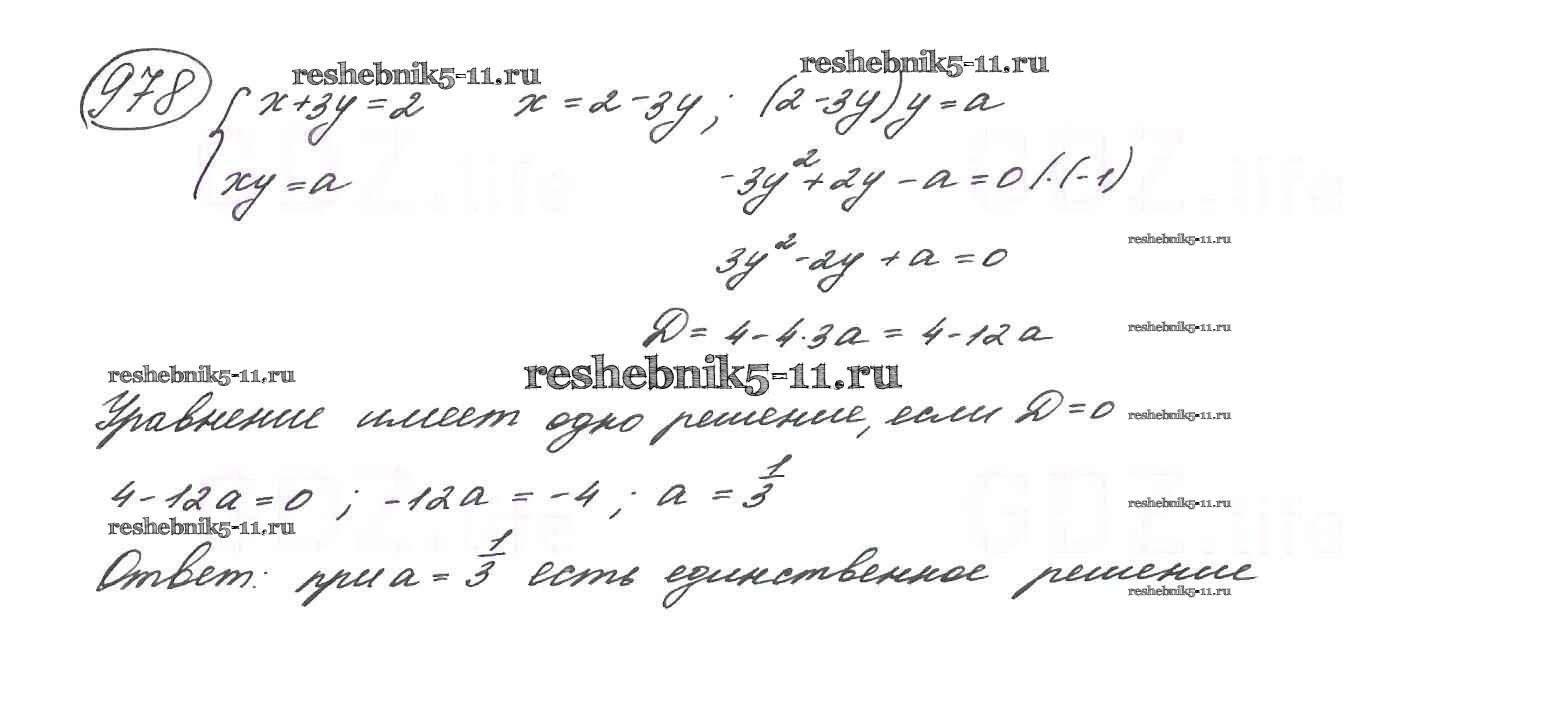 reshebnik5-11.ru reshebnik5-11.ru
978 { x+3y=2 x=2-3y; (2-3y)y=a
xy=a -3y²+2y-a=0 /·(-1)
reshebnik5-11.ru
3y²-2y+a=0
D=4-4·3a=4-12a reshebnik5-11.ru
reshebnik5-11.ru reshebnik5-11.ru
Уравнение имеет одно решение, если D=0 reshebnik5-11.ru
4-12a=0; -12a=-4; a=1/3 reshebnik5-11.ru
reshebnik5-11.ru
Ответ: при a=1/3 есть единственное решение
reshebnik5-11.ru
GDZ.life GDZ.life
GDZ.life GDZ.life